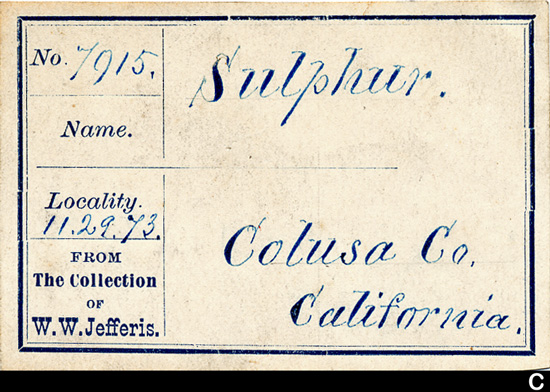 No. 7915.
Sulphur.
Name.
Locality.
11.29.73.
Colusa Co.
California.
FROM
The Collection
OF
W.W. Jefferis.
C